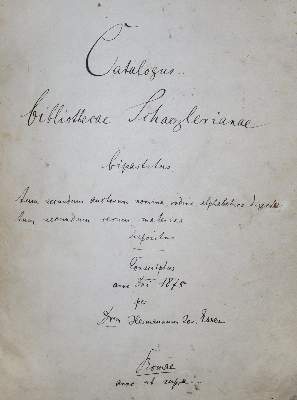 Catalogus
bibliothecae Schaezlerianae
bipartitus
tum secundum auctorum nomina ordine alphabetico digesta
tum secundum rerum materias
dispositus
Conscriptus
anno Dni 1875
per
Drem Hermannum Jos. Esser
Romae
anno ut supra